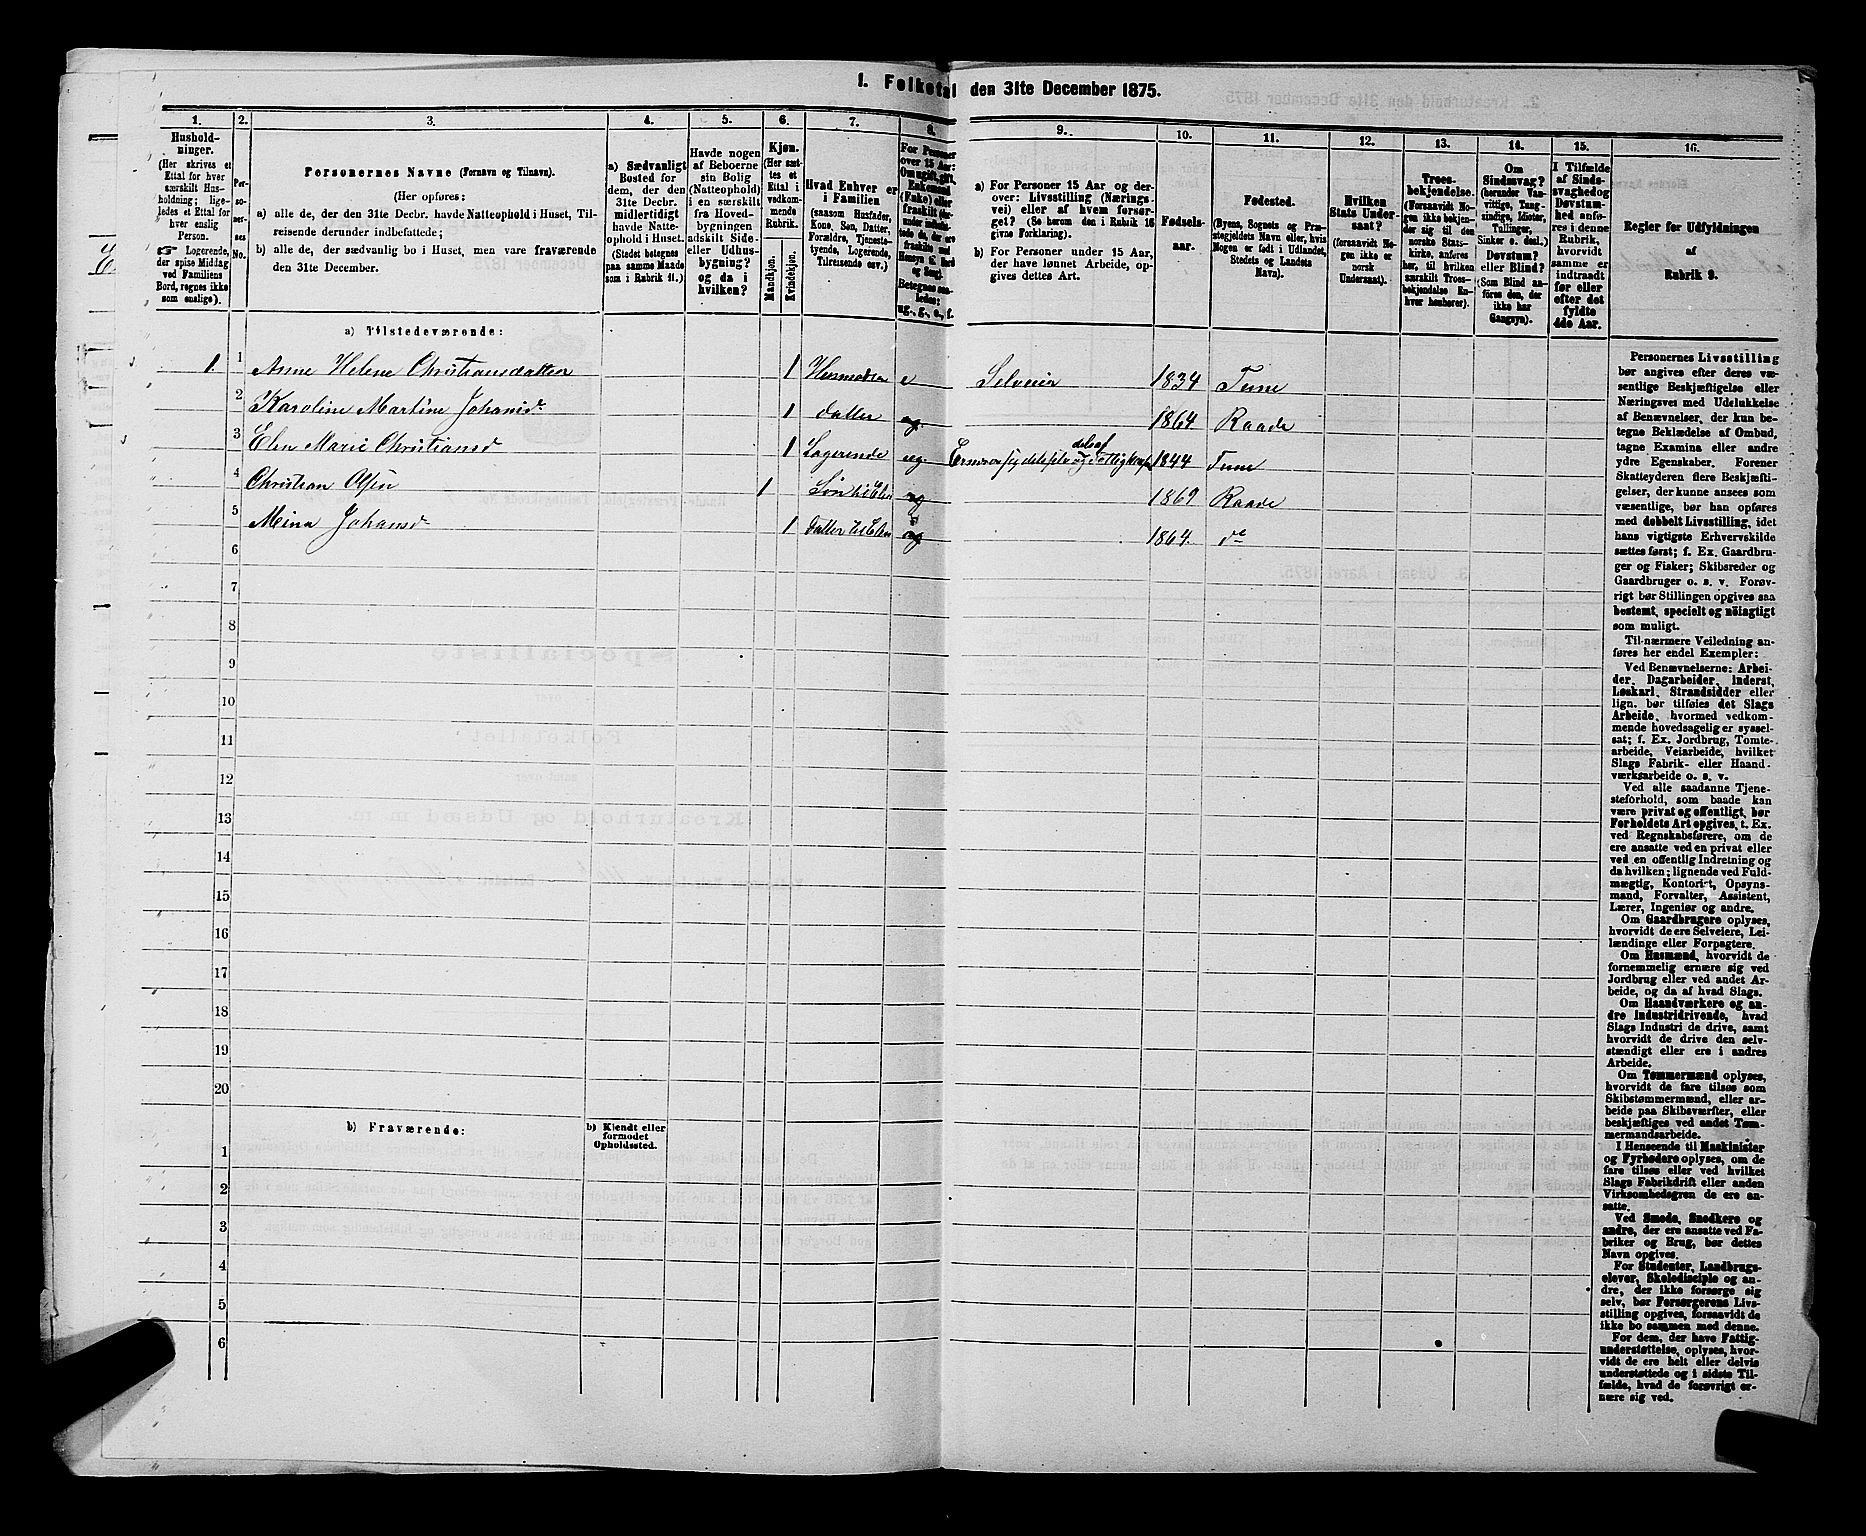 1. Folketal den 31te December 1875.
1. 2. 3. 4. 5. 6. 7. 8. 9. 10. 11. 12. 13. 14. 15. 16.
Hushold-
ninger.
(Her skrives et
Ettal for hver
særskilt Hus-
holdning; lige-
ledes et Ettal for
hver enslig
Person.
☞ Logerende,
der spise Middag
ved Familiens
Bord, regnes ikke
som enslige).
Per-
so-
ner-
nes
No.
Personernes Navne (Fornavn og Tilnavn).
(Her opføres:
a) alle de, der den 31te Decbr. havde Natteophold i Huset, Til-
reisende derunder indbefattede;
b) alle de, der sædvanlig bo i Huset, men vare fraværende
den 31te December.
a) Sædvanligt
Bosted for
dem, der den
31te Decbr.
midlertidigt
havde Natte-
ophold i Huset.
(Stedet betegnes
paa samme Maade
som i Rubrik 11.)
Havde nogen
af Beboerne
sin Bolig
(Natteophold)
i en særskilt
fra Hoved-
bygningen
adskilt Side-
eller Udhus-
bygning?
og da i
hvilken?
Kjøn.
(Her sæt-
tes et
Ettal i
vedkom-
mende
Rubrik.
Mandkjøn.
Kvindekjøn.
Hvad Enhver er
i Familien
(saasom Husfader,
Kone, Søn, Datter,
Forældre, Tjeneste-
tyende, Logerende,
Tilreisende osv.)
For Personer
over 15 Aar:
Om ugift, gift,
Enkemand
(Enke) eller
fraskilt
Betegnes saa-
ledes:
ug., g., e., f.
a) For Personer 15 Aar og der-
over: Livsstilling (Nærings-
vei) eller af hvem forsør-
get? (Se herom den i Rubrik 16
givne Forklaring).
b) For Personer under 15 Aar,
der have lønnet Arbeide, op-
gives dettes Art.
Fødsels-
aar.
Fødested.
(Byens, Sognets og Præ-
stegjeldets Navn eller, hvis
Nogen er født i Udlandet,
Stedets og Landets
Navn).
Hvilken
Stats Under-
saat?
(forsaavidt No-
gen ikke er
norsk
Undersaat).
Troes-
bekjendelse.
(Forsaavidt No-
gen ikke bekjen-
der sig til den
norske Stats-
kirke, anføres
her, til hvilken
særskilt Troes-
bekjendelse En-
hver henhører).
Om
Sindssvag?
(herunder Van-
vittige, Tung-
sindige, Idioter,
Tullinger,
Sinker o. desl.)
Døvstum?
eller Blind?
(Som Blind an-
føres den, der
ikke har
Gangsyn).
I Tilfælde
af Sinds-
svaghed og
Døvstum-
hed anfø-
res i denne
Rubrik,
hvorvidt
samme er
indtraadt
før eller
efter det
fyldte
4de Aar.
Regler for Udfyldningen
af
Rubrik 9.
a) Tilstedeværende:
1. 1 Anne Helene Christiansdatter 1 Husmoder e Selveier 1834 Tune
2 Karoline Martine Johansd. 1 datter ug. 1864 Raade
3 Elen Marie Christiansd 1 Logerende ug. 1844 Tune
4 Christian Olsen 1 Søn til Elen ug 1869 Raade
5 Mina Johansd 1 datter til Elen ug 1864. do
6
7
8
9
10
11
12
13
14
15
16
17
18
19
20
b) Fraværende:
b) Kjendt eller
formodet
Opholdssted.
1
2
3
4
5
6
Personernes Livsstilling
bør angives efter deres væ-
sentlige Beskjæftigelse eller
Næringsvei med Udelukkelse
af Benævnelser, der kun be-
tegne Beklædelse af Ombud,
tagne Examina eller andre
ydre Egenskaber. Forener
Skatteyderen flere Beskjæfti-
gelser, der kunne ansees som
væsentlige, bør han opføres
med dobbelt Livsstilling, idet
hans vigtigste Erhvervskilde
sættes først; f. Ex. Gaardbru-
ger og Fisker; Skibsreder og
Gaardbruger o. s. v. Forøv-
rigt bør Stillingen opgives saa
bestemt, specielt og nöiagtigt
som muligt.
Til nærmere Veiledning an-
føres her endel Exempler:
Ved Benævnelserne: Arbei-
der, Dagarbeider, Inderst,
Løskarl, Strandsidder eller
lign. bør tilføies det Slags
Arbeide, hvormed vedkom-
mende hovedsagelig er syssel-
sat; f. Ex. Jordbrug, Tomte-
arbeide, Veiarbeide, hvilket
Slags Fabrik- eller Haand-
værksarbeide o. s. v.
Ved alle saadanne Tjene-
steforhold, som baade kan
være privat og offentligt, bør
Forholdets Art opgives, t. Ex.
ved Regnskabsførere, om de
ere ansatte ved en privat eller
ved en offentlig Indretning og
da hvilken; lignende ved Fuld-
mægtig, Kontorist, Opsyns-
mand, Forvalter, Assistent,
Lærer, Ingeniør og andre.
Om Gaardbrugere oplyses,
hvorvidt de ere Selveiere, Lei-
lændinge eller Forpagtere.
Om Husmænd, hvorvidt de
fornemmelig ernære sig ved
Jordbrug eller ved andet Ar-
beide, og da af hvad Slags.
Om Haandværkere og an-
dre Industridrivende, hvad
Slags Industri de drive, samt
hvorvidt de drive den selv-
stændigt eller ere i andres
Arbeide.
Om Tømmermænd oplyses,
hvorvidt de fare tilsøs som
Skibstømmermænd, eller ar-
beide paa Skibsværfter, eller
beskjæftiges ved andet Tøm-
mermandsarbeide.
I Henseende til Maskinister
og Fyrbødere oplyses, om de
fare tilsøs eller ved hvilket
Slags Fabrikdrift eller anden
Virksomhedsgren de ere an-
satte.
Ved Smede, Snedkere og
andre, der ere ansatte ved Fa-
briker og Brug, bør dettes
Navn opgives.
For Studenter, Landbrugs-
elever, Skoledisciple og an-
dre, der ikke forsørge sig
selv, bør Forsørgerens Livs-
stilling opgives, forsaavidt de
ikke bo sammen med denne.
For dem, der have Fattig-
understøttelse, oplyses, hvor-
vidt de ere helt eller delvis
understøttede og i sidste Til-
fælde, hvad de forøvrigt er-
nære sig ved.